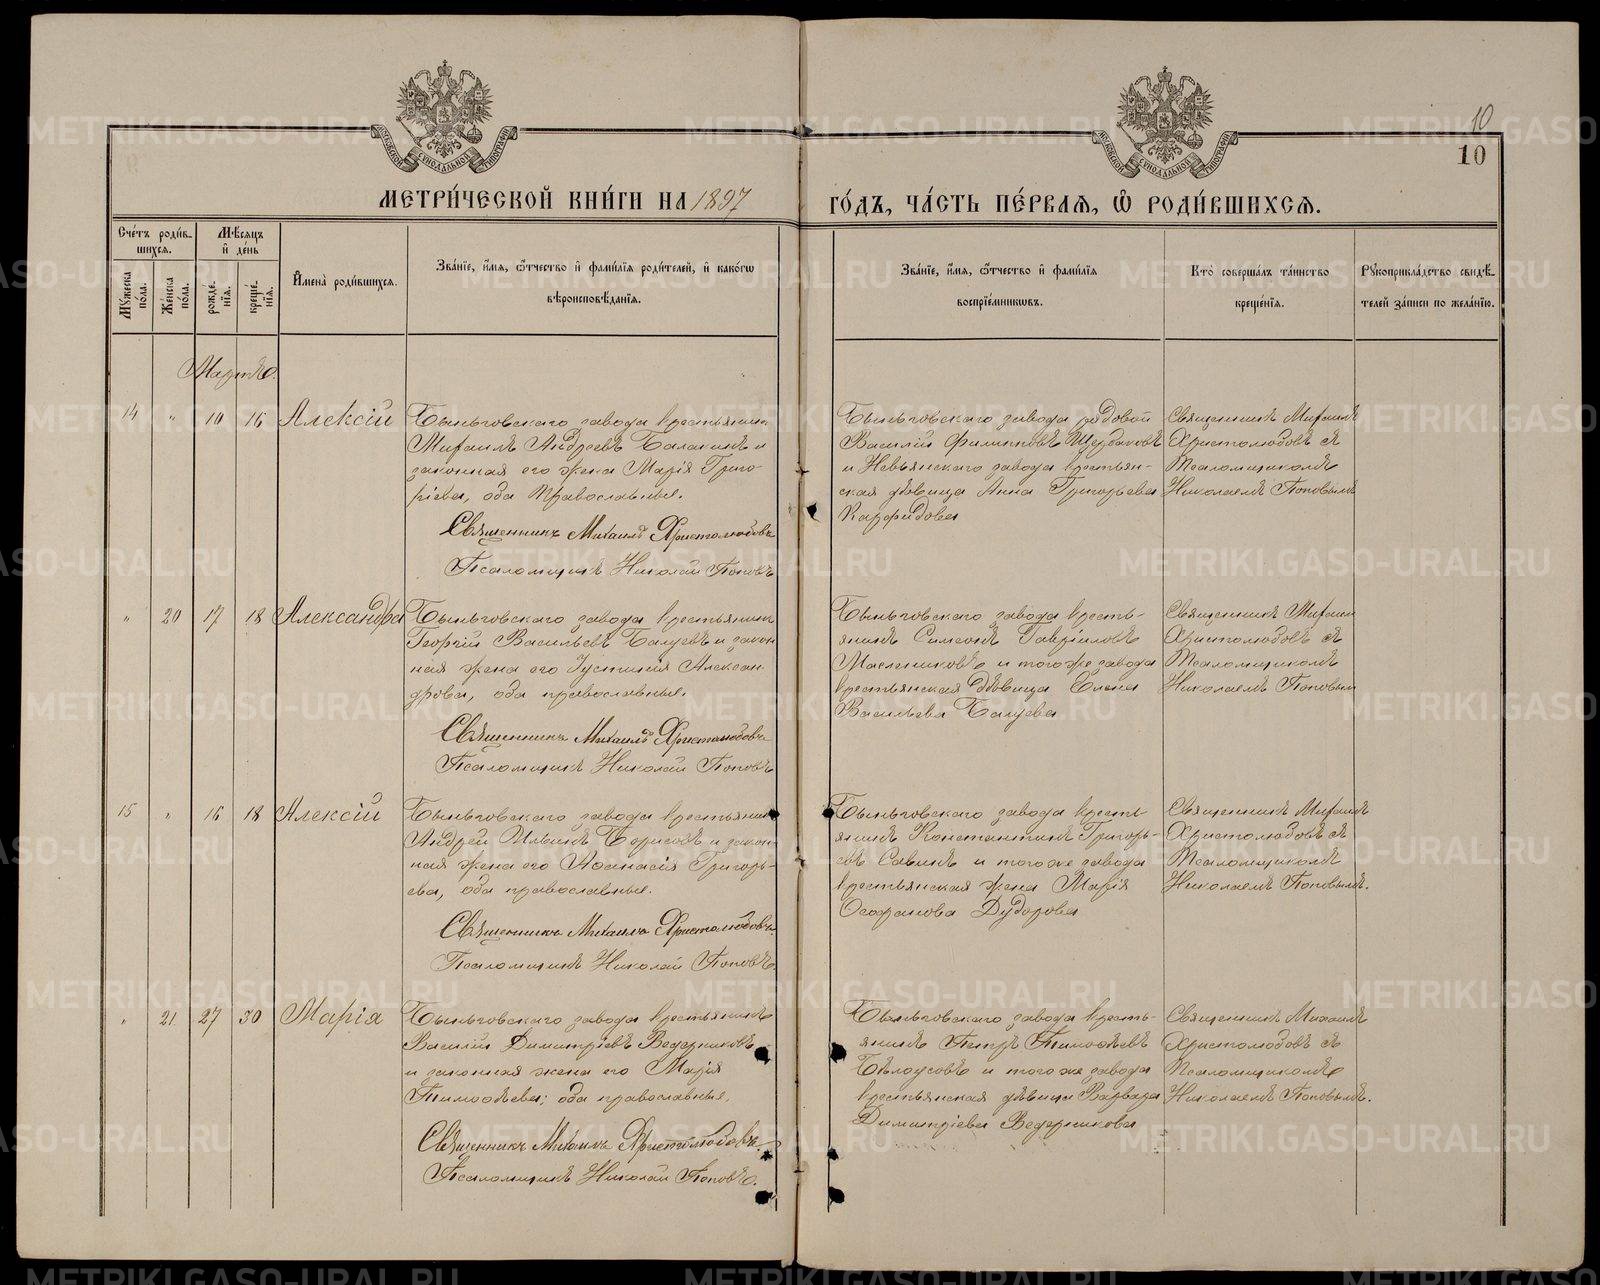 10
10
МЕТРИ́ЧЕСКОЙ КНИ́ГИ НА 1897
ГО́ДЪ, ЧА́СТЬ ПЕ́РВАѦ, Ѽ РОДИ́ВШИХСѦ.
МОСКОВСКОЙ СѴНОДАЛЬНОЙ ТИПОГРАФІИ
МОСКОВСКОЙ СѴНОДАЛЬНОЙ ТИПОГРАФІИ
Сче́тъ роди́в-
шихсѧ.
Мѣ́сѧцъ
и҆ де́нь
Мꙋ́жеска
по́ла.
Же́нска
по́ла.
рожде́-
нїѧ.
креще́-
нїѧ.
И҆мена̀ роди́вшихсѧ.
Зва́нїе, и҆́мѧ, ѻ҆́тчество и҆ фами́лїѧ роди́телей, и҆ како́гѡ
вѣроисповѣ́данїѧ.
Зва́нїе, и҆́мѧ, ѻ҆́тчество и҆ фами́лїѧ
воспрїе́мниковъ.
Кто̀ соверша́лъ та́инство
креще́нїѧ.
Рꙋкоприкла́дство свидѣ́-
телей за́писи по жела́нїю.
Мартъ.
14 " 10 16 Алексій
Быньговскаго завода крестьянинъ
Михаилъ Андреевъ Балакинъ и
законная его жена Марія Григо-
ріева, оба Православные.
Священникъ Михаилъ Христолюбовъ
Псаломщикъ Николай Поповъ
Быньговскаго завода рядовой
Василій Филипповъ Щербаковъ
и Невьянскаго завода крестьян-
ская дѣвица Анна Григорьева
Карфидова
Священникъ Михаилъ
Христолюбовъ съ
Псаломщикомъ
Николаемъ Поповымъ
" 20 17 18 Александра
Быньговскаго завода крестьянинъ
Георгій Васильевъ Балуевъ и закон
ная жена его Іустинія Алексан
дрова, оба православные.
Священникъ Михаилъ Христолюбовъ
Псаломщикъ Николай Поповъ
Быньговскаго завода кресть-
янинъ Симеонъ Гавріиловъ
Масленниковъ и того же завода
крестьянская дѣвица Елена
Васильева Балуева
Священникъ Михаилъ
Христолюбовъ съ
Псаломщикомъ
Николаемъ Поповым
15 " 16 18 Алексій
Быньговскаго завода крестьянинъ
Андрей Ильинъ Борисовъ и закон-
ная жена его Аѳанасія Григорь-
ева, оба православные.
Священникъ Михаилъ Христолюбовъ
Псаломщикъ Николай Поповъ
Быньговскаго завода кресть
янинъ Константинъ Григорь-
евъ Савинъ и того же завода
крестьянская жена Марія
Ѳеофанова Дудорова
Священникъ Михаилъ
Христолюбовъ съ
Псаломщикомъ
Николаемъ Поповымъ.
" 21 27 30 Марія
Быньговскаго завода крестьянинъ
Василій Димитріевъ Ведерниковъ
и законная жена его Марія
Тимоѳѣева; оба православные.
Священникъ Михаилъ Христолюбовъ
Псаломщикъ Николай Поповъ.
Быньговскаго завода кресть-
янинъ Петръ Тимоѳѣевъ
Бѣлоусовъ и того же завода
крестьянская дѣвица Варвара
Димитріева Ведерникова
Священникъ Михаилъ
Христолюбовъ съ
Псаломщикомъ
Николаемъ Поповымъ.
METRIKI.GASO-URAL.RU